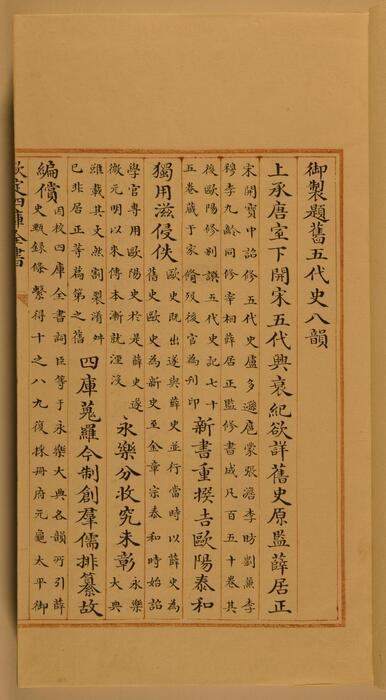 御製題舊五代史八韻
上承唐室下開宋五代興衰紀欲詳舊史原監薛居正
宋開寶中詔修五代史盧多遜扈蒙張澹李昉劉兼李
穆李九齡同修宰相薛居正監修書成凡百五十卷其
後歐陽修別譔五代史記七十
五卷藏于家脩歿後官為刋印
新書重撰吉歐陽泰和
獨用滋侵佚
歐史既出遂與薛史並行當時以薛史為
舊史歐史為新史至金章宗泰和時始詔
學官專用歐陽史於是薛史遂
微元明以來傳本漸就湮没
永樂分收究未彰
永樂
大典
雖載其文然割裂淆舛
已非居正等篇第之舊
四庫蒐羅今制創羣儒排纂故
編償
因校四庫全書詞臣等于永樂大典各韻所引薛
史甄錄條繫得十之八九復採冊府元龜太平御
欽定四庫全書